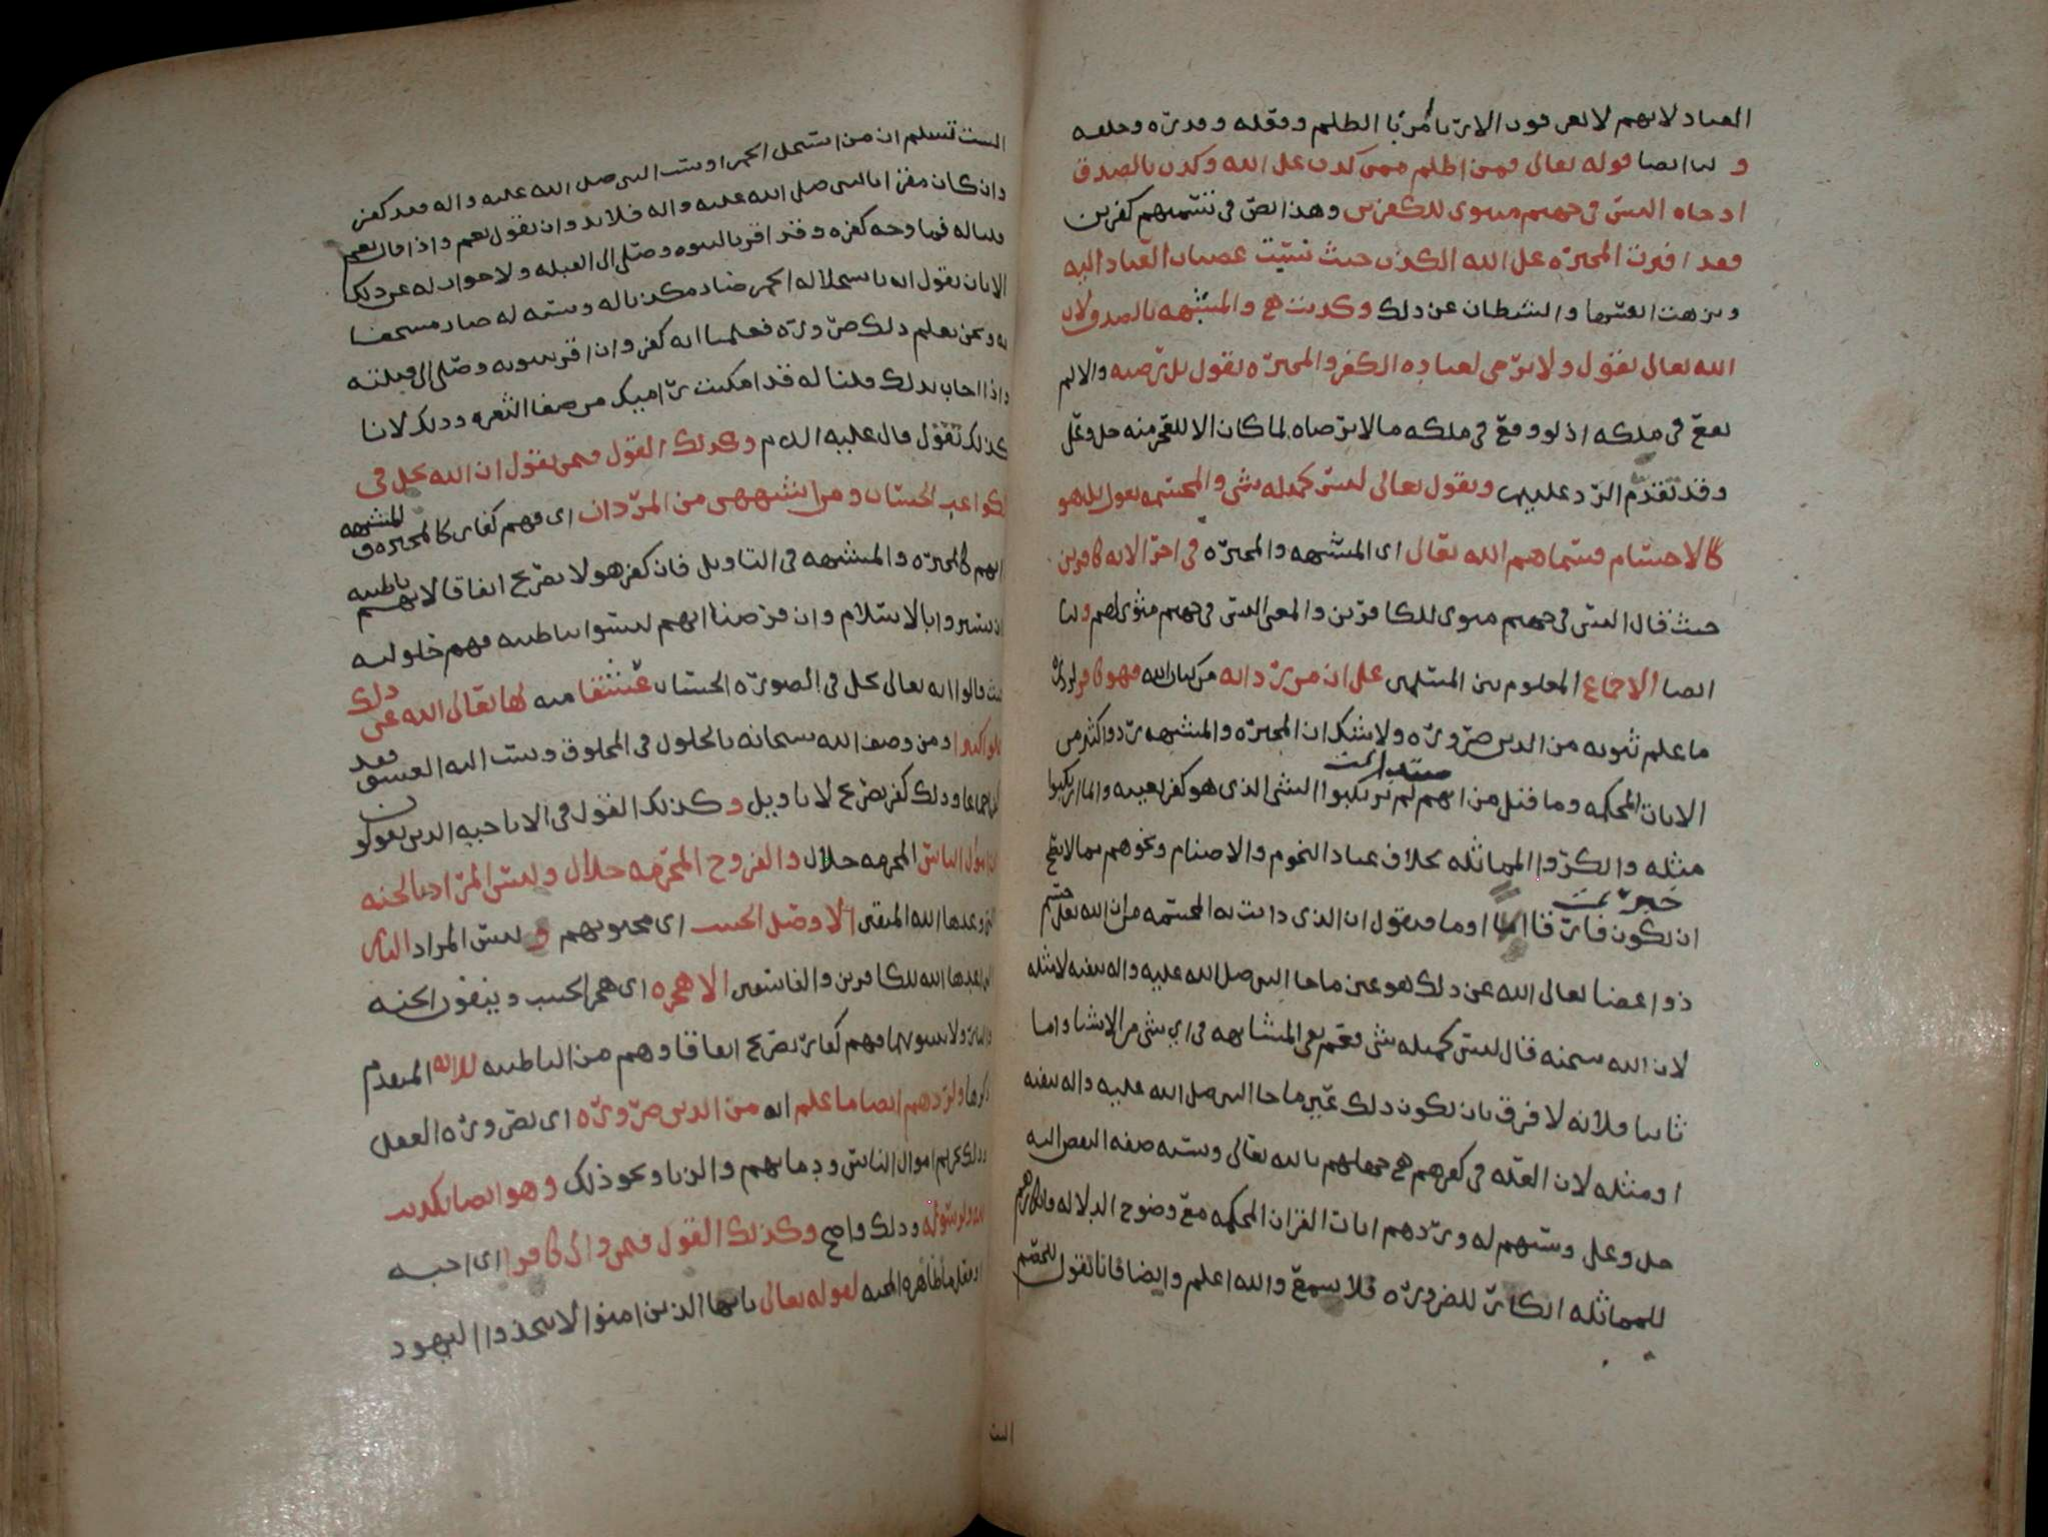 العباد لانهم لا يعرفون الا ربا مريدا الظلم وفعله وقدره وخلقه
و لنا ايضا قوله تعالى فمن اظلم ممن كذب على الله وكذب بالصدق
اذ جاه اليس في جهنم مثوى للكفرين وهذا نص في تسميتهم كفرين
فقد افترت المجبره على الله الكذب حيث نسبت عصيان العباد اليه
ونزهت انفسها والشيطان عن ذلك وكذبت هي والمشبهه بالصدق لان
الله تعالى يقول ولا يرضى لعباده الكفر والمجبره تقول بل يرضيه والا لم
يقع في ملكه اذ لو وقع في ملكه ما لا يرضاه لما كان الا للعجز منه جل وعلى
وقد تقدم الرد عليهم ويقول تعالى ليس كمثله شي والمجسمه تقول بل هو
كالاجسام فسماهم الله تعالى اى المشبهه والمجبره في اخر الايه كافرين
حيث قال اليس في جهنم مثوى للكافرين والمعنى اليس في جهنم مثوى لهم ولنا
ايضا الاجماع المعلوم بين المسلمين على ان من رد ايه من كتاب الله فهو كافر لرده
ما علم ثبوته من الدين ضروره ولا شك ان المجبره والمشبهه ردوا اكثر من
الايات المحكمه وما قيل من انهم لم يرتكبوا الشي الذي هو كفر بعينه وانما ارتكبوا
مثله وانكروا المماثله بخلاف عباد النجوم والاصنام ونحوهم مما لا يصح
ان يكون فارقا اما اولا فنقول ان الذي دانت به المجسمه من ان الله تعالى جسم
ذو اعضا تعالى الله عن ذلك هو عين ما جا النبي صلى الله عليه واله بنفيه لا مثله
لان الله سبحنه قال ليس كمثله شي فعم نفي المشابهه في اي شي من الاشيا واما
ثانيا فلانه لا فرق بان يكون ذلك عين ما جا النبي صلى الله عليه واله بنفيه
او مثله لان العله في كفرهم هي جهلهم بالله تعالى ونسبه صفه النقص اليه
جل وعلى وسبهم له وردهم ايات القران المحكمه مع وضوح الدلاله وانكارهم
للمماثله انكار للضروره فلا يسمع والله اعلم وايضا فانا نقول للخصم
الست
الست تسلم ان من استحل الخمر او سب النبي صلى الله عليه واله فقد كفر
وان كان مقرا بالنبي صلى الله عليه واله فلا بد وان تقول نعم واذا قال نعم
قلنا له فما وجه كفره وقد اقر بالنبوه وصلى الى القبله ولا جواب له عن ذلك
الا بان يقول انه باستحلاله الخمر صار مكذبا له وبسبه له صار مستخفا
به ونحن نعلم ذلك ضروره فعلمنا انه كفر وان اقر بنبوته وصلى الى قبلته
واذا اجاب بذلك قلنا له قد امكنت راميك من صفا الثغره وذلك لانا
كذلك نقول قال عليه السلام وكذلك القول فيمن يقول ان الله يحل في
الكواعب الحسان ومن اشبههن من المردان اى فهم كفار كالمجبره والمشبهه
انهم كالمجبره والمشبهه في التاويل فان كفر هولا تصريح اتفاقا لانهم باطنيه
تستروا بالاسلام وان فرضنا انهم ليسوا باطنيه فهم حلوليه
حيث قالوا انه تعالى يحل في الصوره الحسان عشقا منه لها تعالى الله عن ذلك
علوا كبيرا ومن وصف الله سبحانه بالحلول في المخلوق ونسب اليه العشق فقد
كفر اجماعا وذلك كفر تصريح لا تاويل وكذلك القول في الاباحيه الذين يقولون
ان اموال الناس المحرمه حلال والفروج المحرمه حلال وليس المراد بالجنه
التي وعدها الله المتقين الا وصل الحبيب اى محبوبهم وليس المراد النار
التي اعدها الله للكافرين والفاسقين الا هجره اى هجر الحبيب وينفون الجنه
والنار ولا يثبتونهما فهم كفار تصريح اتفاقا وهم من الباطنيه للايه المتقدم
ذكرها ولردهم ايضا ما علم انه من الدين ضروره اى بضروره العقل
وذلك تحريم اموال الناس ودمائهم والزنا ونحو ذلك وهو ايضا تكذيب
لله ولرسوله وذلك واضح وكذلك القول فيمن والى كافرا اى احبه
او فعل ما ظاهره المحبه لقوله تعالى يايها الذين امنوا لا تتخذوا اليهود